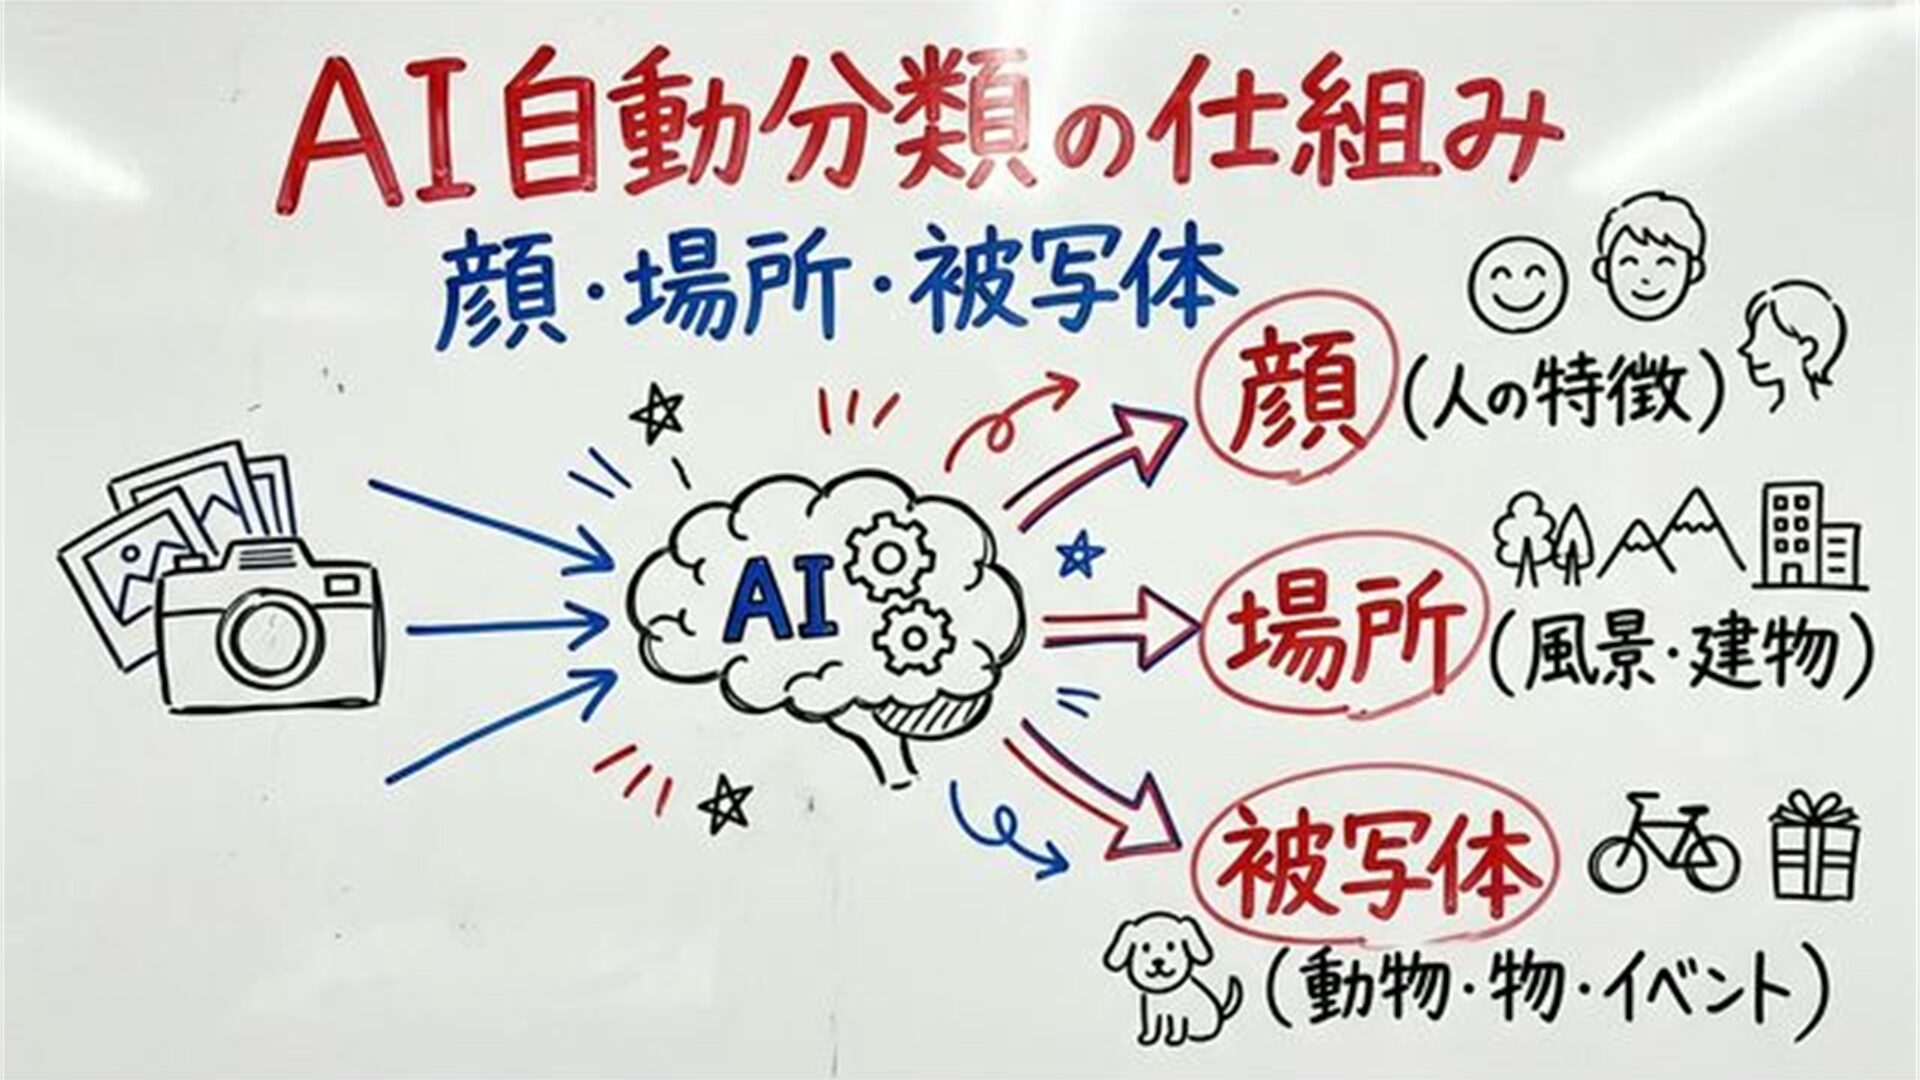 AI自動分類の仕組み
顔・場所・被写体
顔
(人の特徴)
AI
場所
(風景・建物)
被写体
(動物・物・イベント)